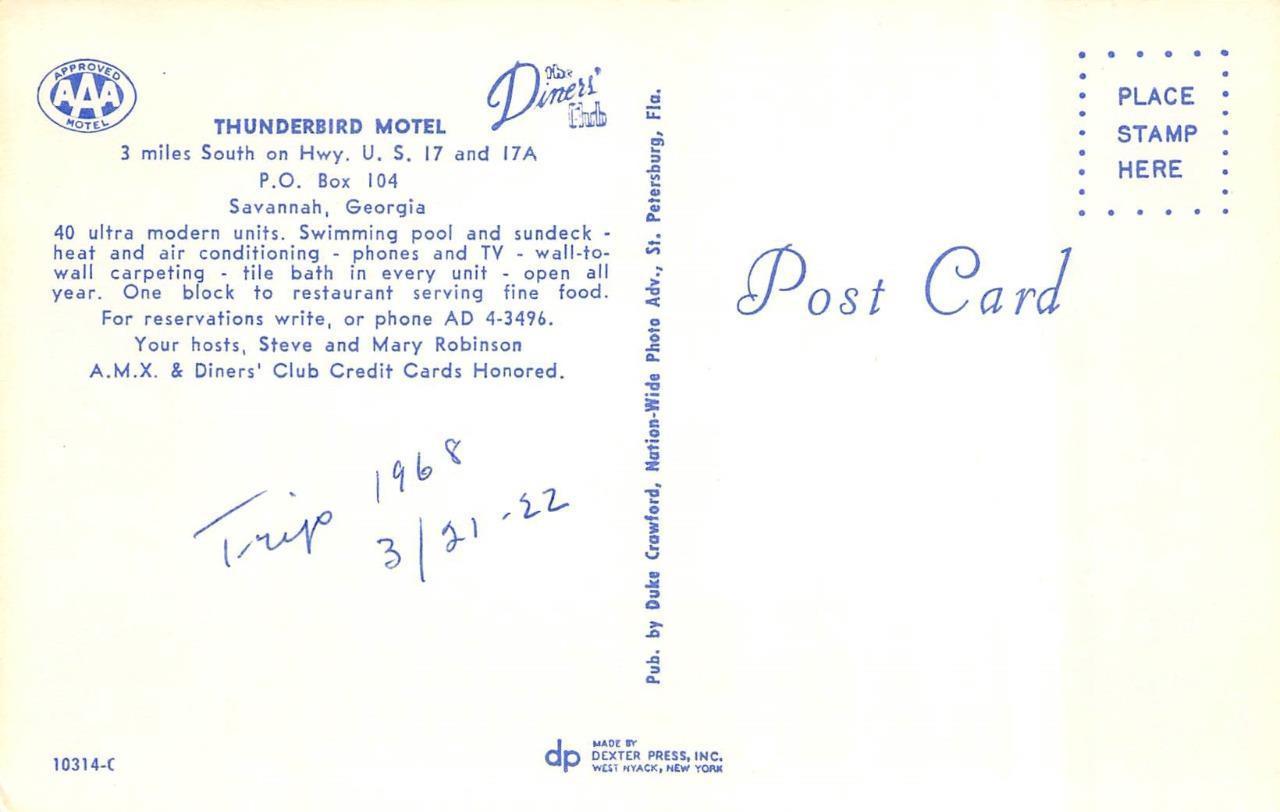 APPROVED
AAA
MOTEL
The
Diners'
Club
THUNDERBIRD MOTEL
3 miles South on Hwy. U. S. 17 and 17A
P.O. Box 104
Savannah, Georgia
40 ultra modern units. Swimming pool and sundeck -
heat and air conditioning - phones and TV - wall-to-
wall carpeting - tile bath in every unit - open all
year. One block to restaurant serving fine food.
For reservations write, or phone AD 4-3496.
Your hosts, Steve and Mary Robinson
A.M.X. & Diners' Club Credit Cards Honored.
Trip 1968
3/21-22
10314-C
Pub. by Duke Crawford, Nation-Wide Photo Adv., St. Petersburg, Fla.
dp
MADE BY
DEXTER PRESS, INC.
WEST NYACK, NEW YORK
PLACE
STAMP
HERE
Post Card